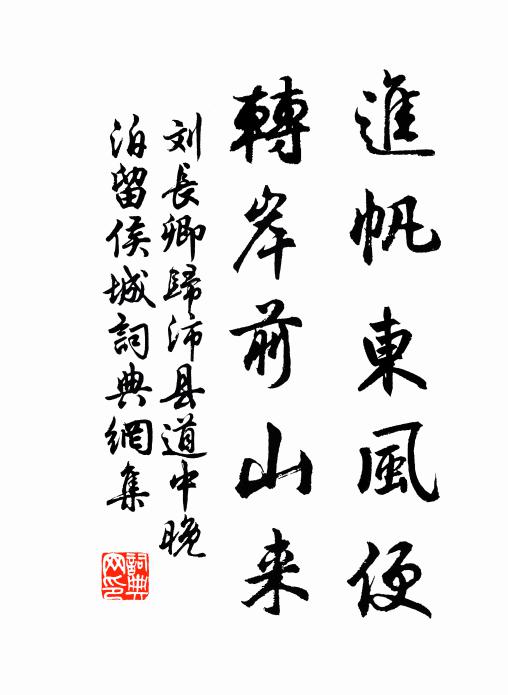 進帆東風便
轉岸前山来
刘長卿歸沛县道中晚
泊留侯城詞典網集
詞典
网印